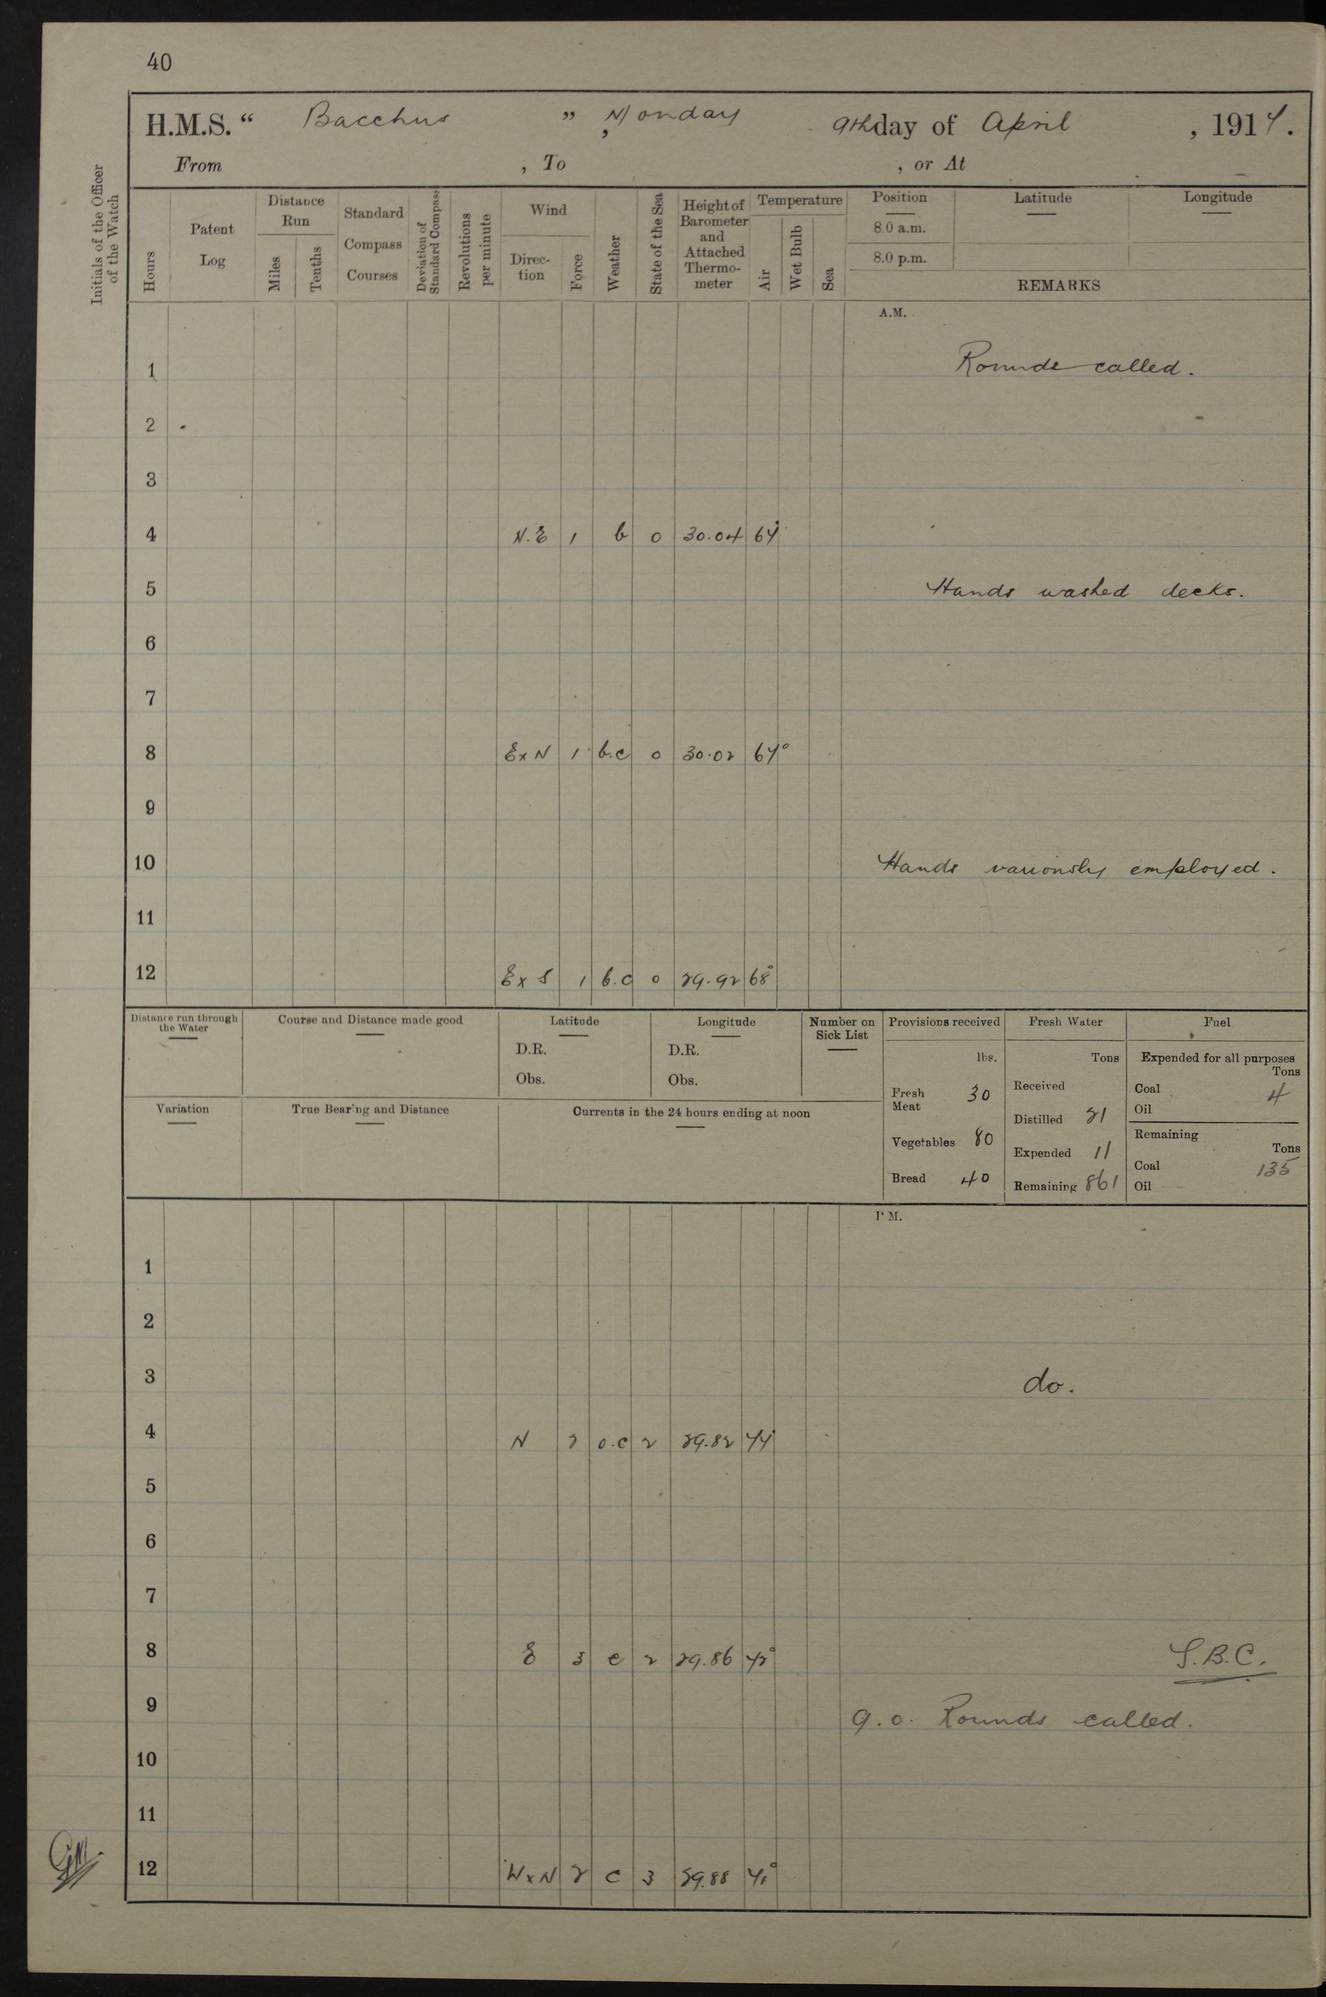 40
H.M.S. “ Bacchus ” , Monday 9th day of April , 1917.
From , To , or At
Initials of the Officer of the Watch
Hours
Patent Log
Distance Run
Miles
Tenths
Standard Compass Courses
Deviation of Standard Compass
Revolutions per minute
Wind
Direction
Force
Weather
State of the Sea
Height of Barometer and Attached Thermometer
Temperature
Air
Wet Bulb
Sea
Position Latitude Longitude
8.0 a.m.
8.0 p.m.
REMARKS
A.M.
1 Rounds called.
2
3
4 N.E 1 b 0 30.04 67°
5 Hands washed decks.
6
7
8 ExN 1 b.c 0 30.02 67°
9
10 Hands variously employed.
11
12 ExS 1 b.c 0 29.92 68°
Distance run through the Water
Course and Distance made good
Latitude
D.R.
Obs.
Longitude
D.R.
Obs.
Number on Sick List
Variation
True Bearing and Distance
Currents in the 24 hours ending at noon
Provisions received
lbs.
Fresh Meat 30
Vegetables 80
Bread 40
Fresh Water
Tons
Received
Distilled 21
Expended 11
Remaining 861
Fuel
Expended for all purposes
Tons
Coal 4
Oil
Remaining
Tons
Coal 135
Oil
P.M.
1
2
3 do.
4 N 2 o.c 2 29.82 77°
5
6
7
8 E 3 c 2 29.86 72° S.B.C.
9 9.0. Rounds called.
10
11
12 WxN 2 c 3 29.88 71°